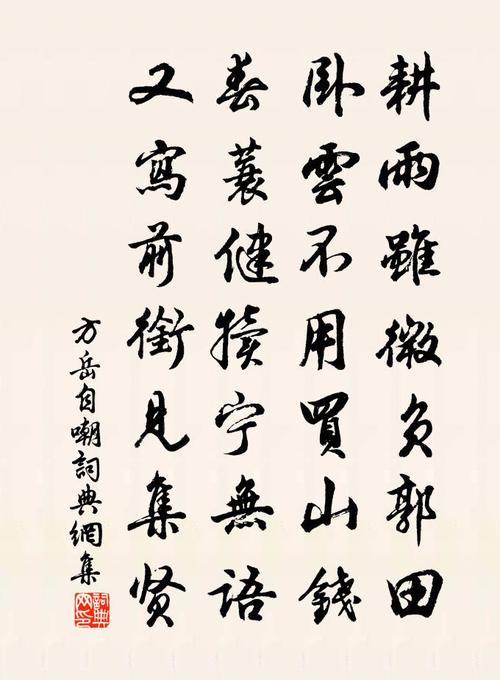 耕雨雖微負郭田
卧雲不用買山錢
春蓑健犢宁無語
又寫前銜見集贤
方岳自嘲詞典網集
詞典網印